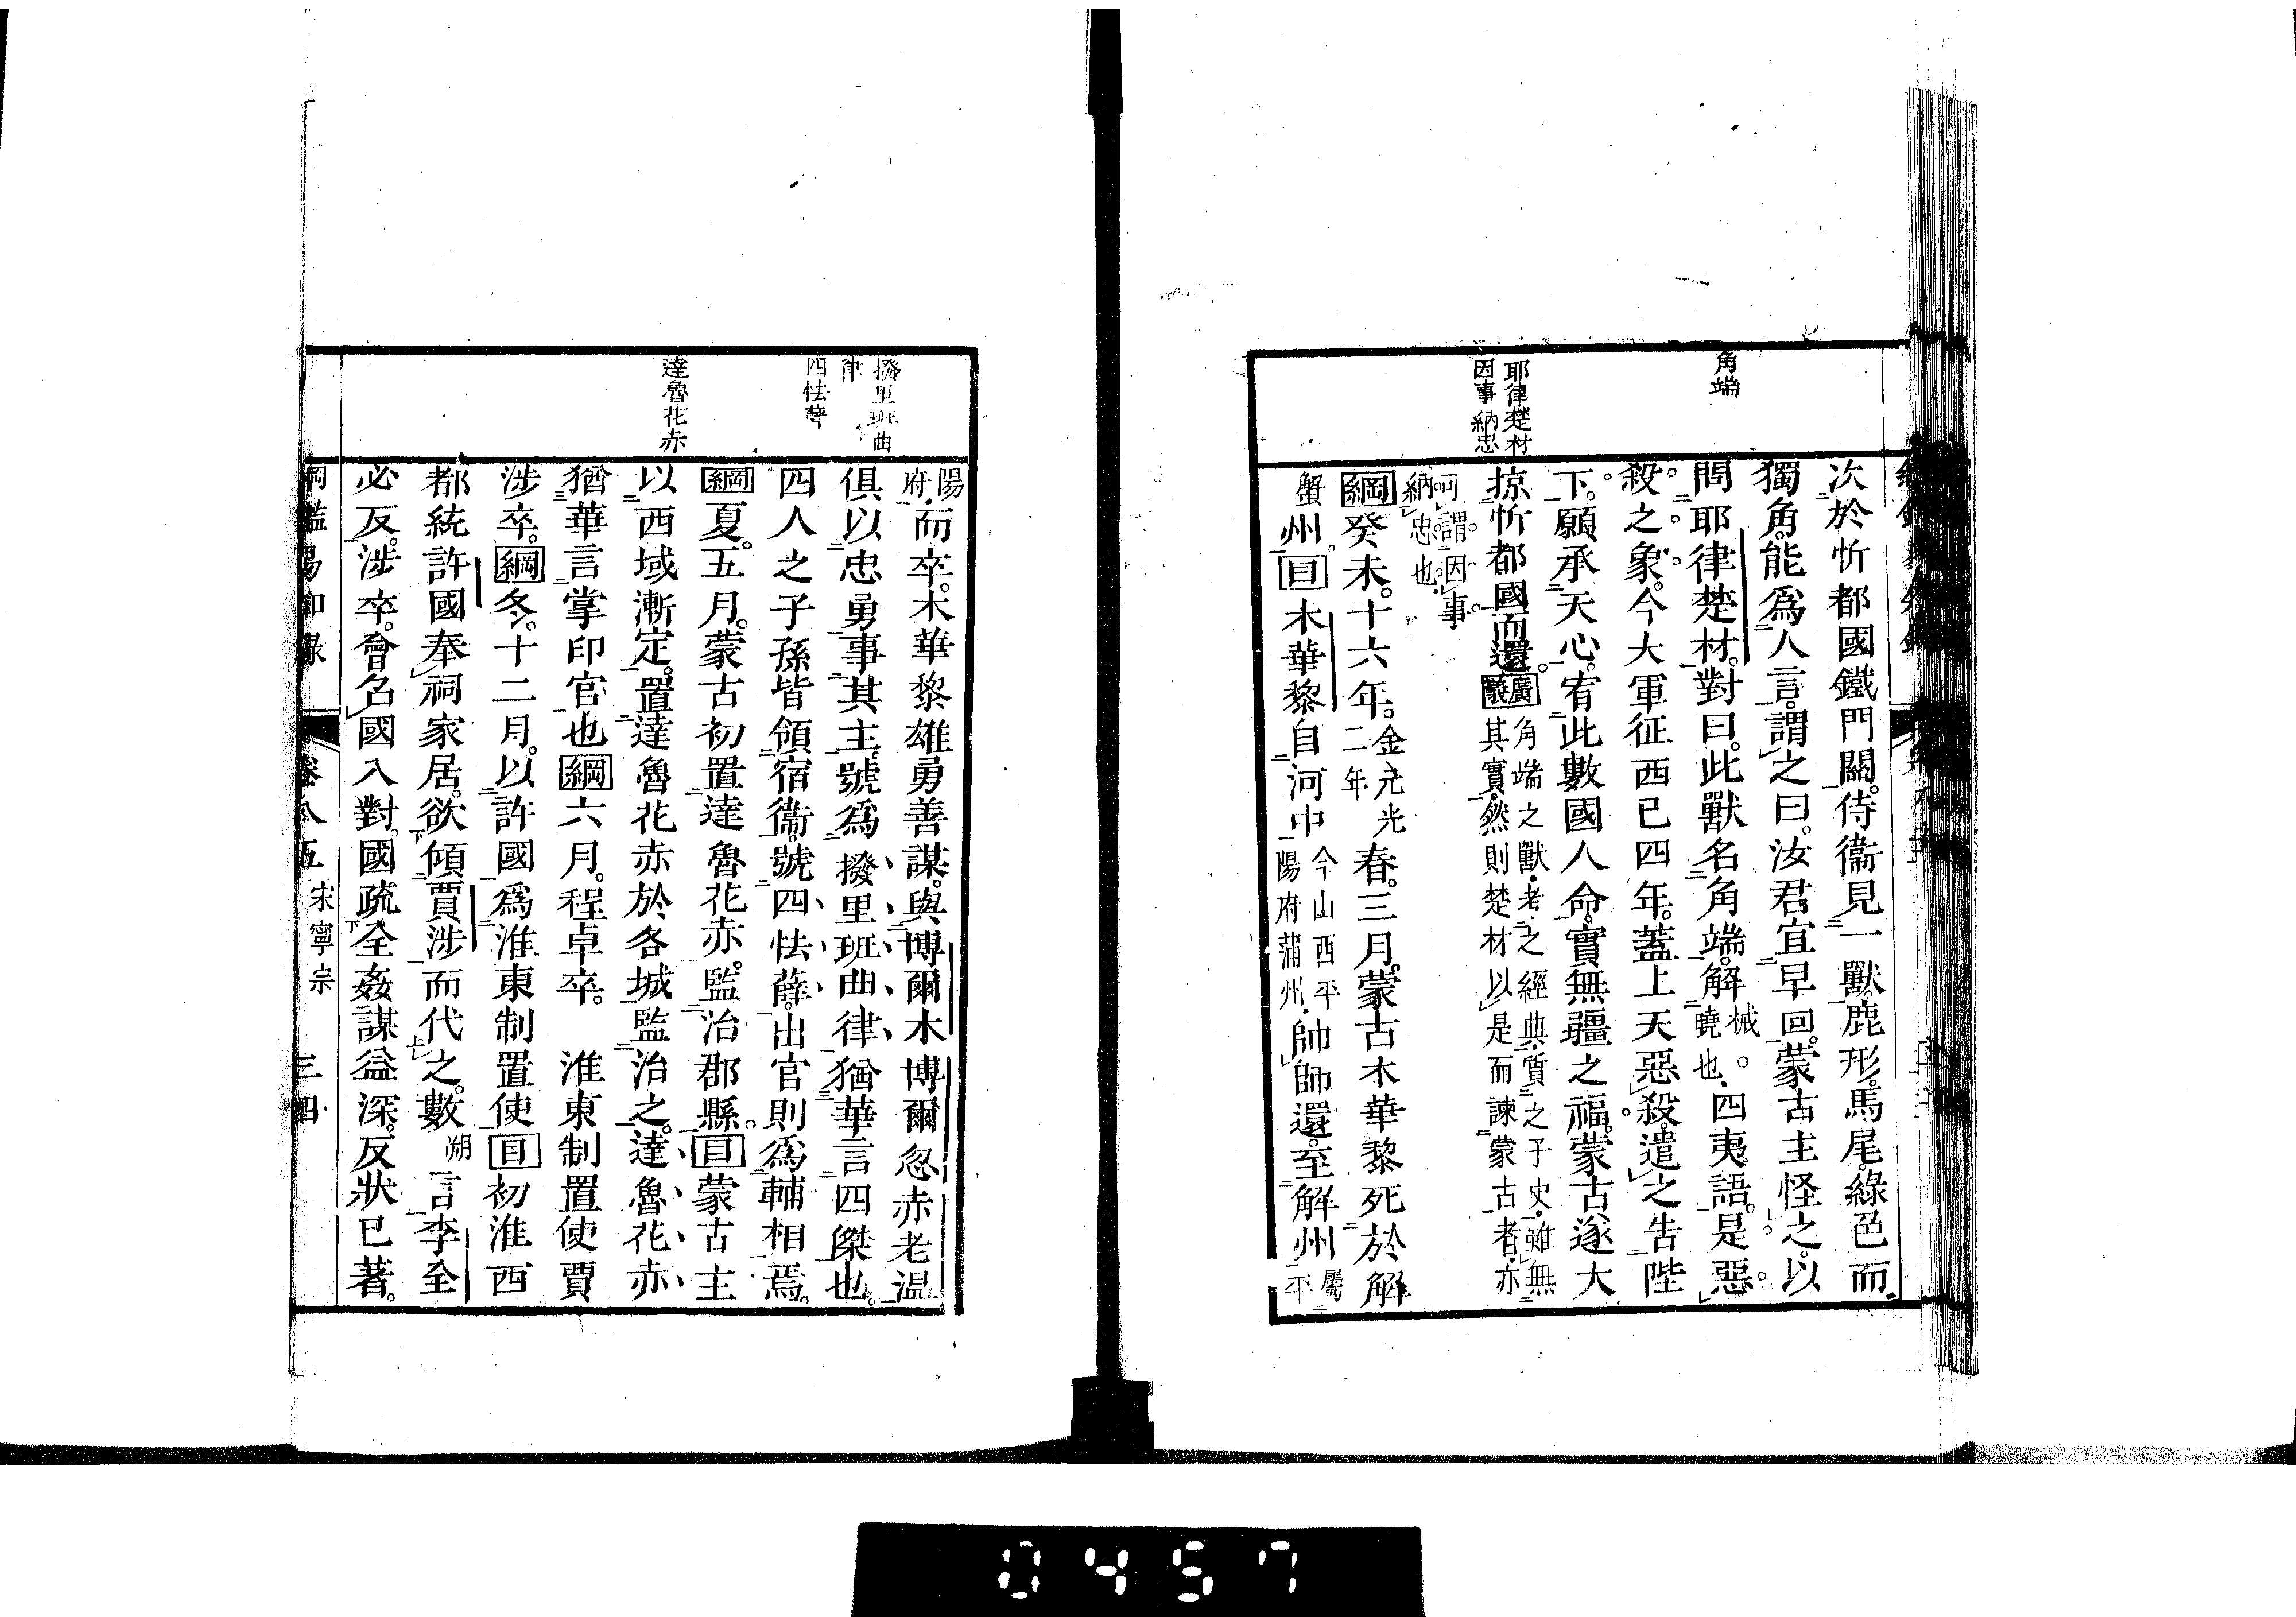 角端
耶律楚材
因事納忠
次於忻都國鐵門關。侍衞見一獸。鹿形。馬尾。綠色而
獨角。能爲人言。謂之曰。汝君宜早回。蒙古主怪之。以
問耶律楚材。對曰。此獸名角端。解械。曉也。四夷語。是惡
殺之象。今大軍征西已四年。蓋上天惡殺。遣之告陛
下。願承天心。宥此數國人命。實無疆之福。蒙古遂大
掠忻都國而還。廣發角端之獸。考之經典。質之子史。雖無
其實。然則楚材以是而諫蒙古者。亦
可謂因事
納忠也。
綱癸未。十六年。金元光二年春。三月。蒙古木華黎死於解
蟹州。目木華黎自河中今山西平陽府蒲州。帥師還。至解州屬平
撥里班曲
律
四怯薛
達魯花赤
陽府。而卒。木華黎雄勇善謀。與博爾木博爾忽赤老温
俱以忠勇事其主。號爲撥里班曲律。猶華言四傑也。
四人之子孫皆領宿衞。號四怯薛。出官則爲輔相焉。
綱夏。五月。蒙古初置達魯花赤。監治郡縣。目蒙古主
以西域漸定。置達魯花赤於各城監治之。達魯花赤
猶華言掌印官也綱六月。程卓卒。淮東制置使賈
涉卒。綱冬。十二月。以許國爲淮東制置使目初淮西
都統許國奉祠家居。欲傾賈涉而代之。數朔言李全
必反。涉卒。會召國入對。國疏全姦謀益深。反狀已著。
綱鑑易知錄
卷八五
宋寧宗
三四
0457